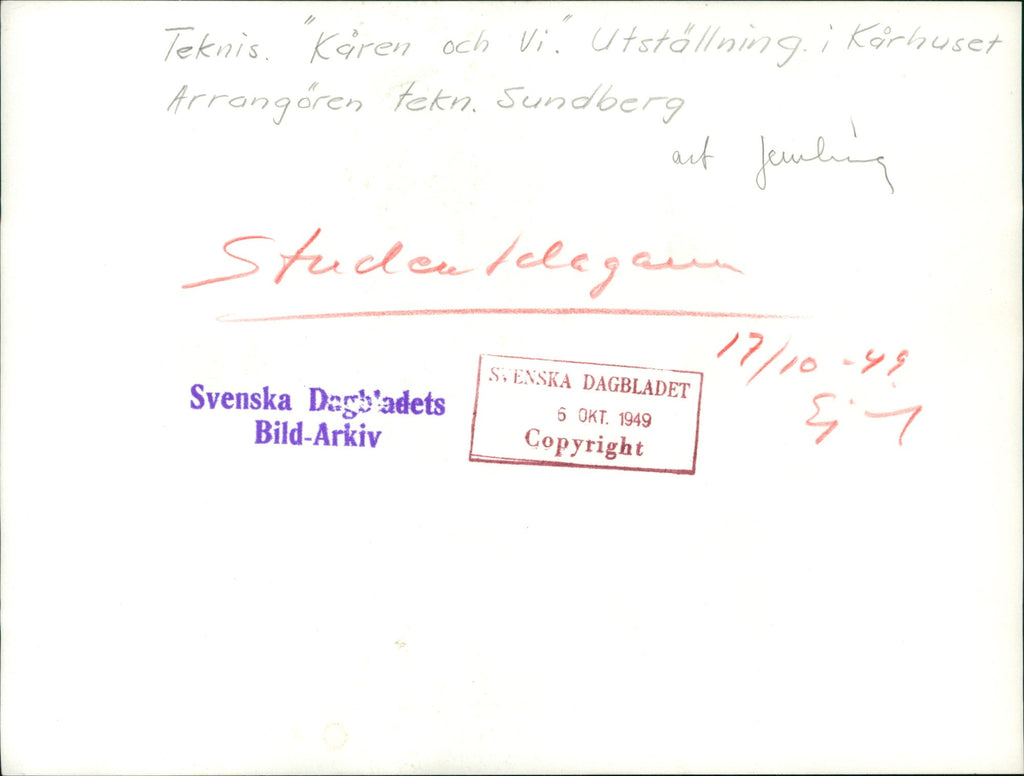 Teknis. "Kåren och Vi". Utställning. i Kårhuset
Arrangören tekn. Sundberg
art
Studentdagarna
17/10 - 49
Svenska Dagbladets
Bild-Arkiv
SVENSKA DAGBLADET
6 OKT. 1949
Copyright
Ej